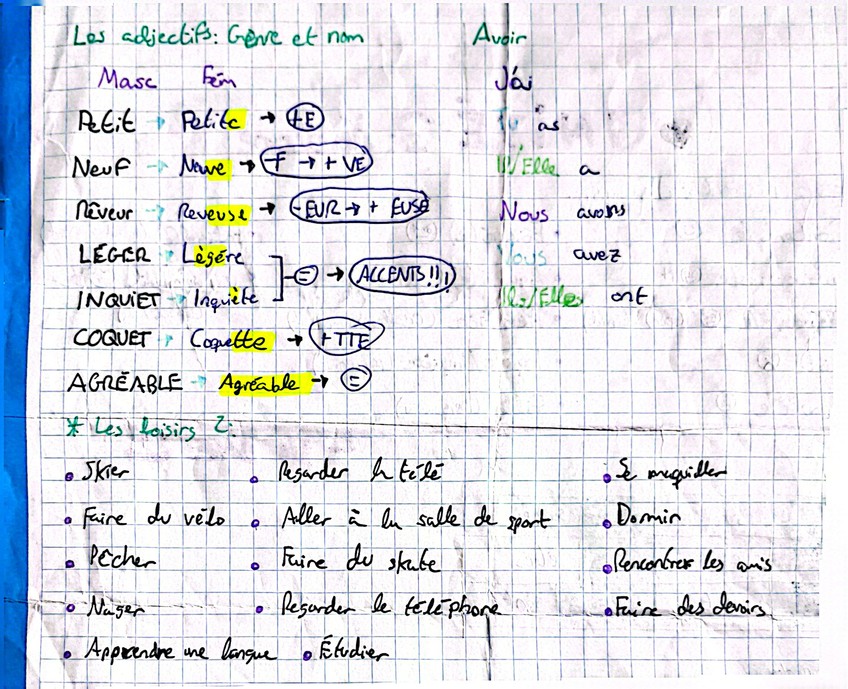 Les adjectifs: Genre et nom
Masc Fém
Petit → Petite → +E
Neuf → Neuve → -F → + VE
Rêveur → Reveuse → -EUR → + EUSE
LÉGER → Légére
INQUIET → Inquiète
E → ACCENTS!!!
COQUET → Coquette → + TTE
AGRÉABLE → Agréable → E
Avoir
J'ai
Tu as
Il/Elle a
Nous avons
Vous avez
Ils/Elles ont
* Les loisirs 2:
• Skier
• Faire du vélo
• Pêcher
• Nager
• Apprendre une langue
• Regarder la télé
• Aller à la salle de sport
• Faire du skate
• Regarder le téléphone
• Étudier
• Se maquiller
• Dormir
• Rencontrer les amis
• Faire des devoirs